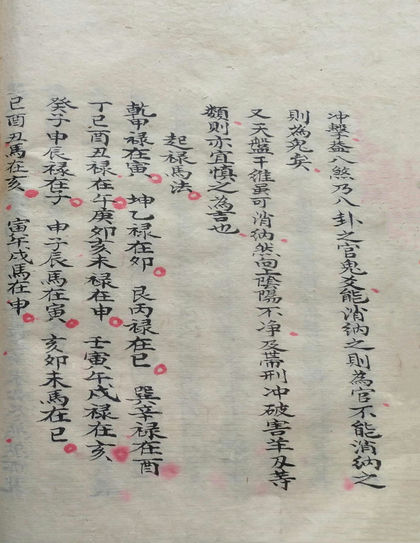 冲擊蓋八煞乃八卦之官鬼爻能消納之則為官不能消納之
則為鬼矣
又天盤干維虽可消納然向上陰陽不净及帶刑冲破害羊刃等
類則亦宜慎之為吉也
起禄馬法
乾甲禄在寅 坤乙禄在卯 艮丙禄在巳 巽辛禄在酉
丁巳酉丑禄在午 庚卯亥未禄在申 壬寅午戌禄在亥
癸子申辰禄在子 申子辰馬在寅 亥卯未馬在巳
巳酉丑馬在亥 寅午戌馬在申